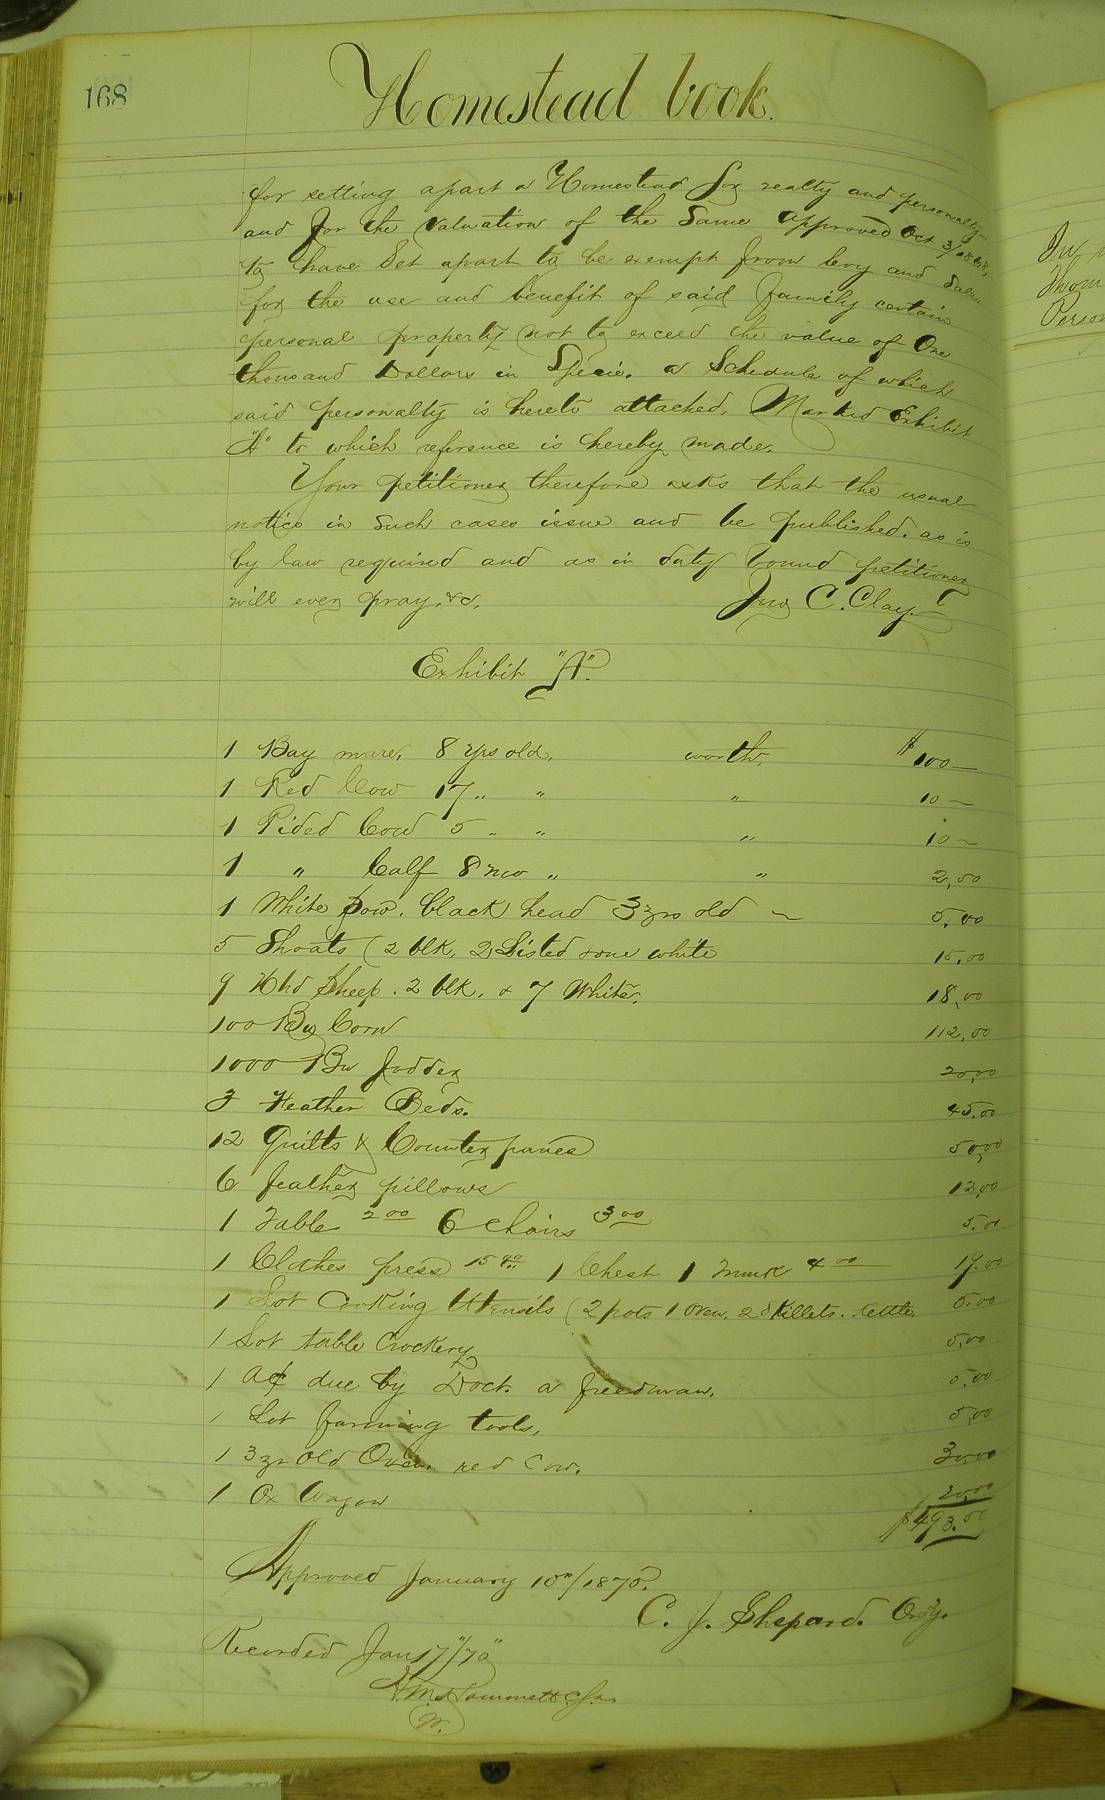 168
Homestead book.
for setting apart a Homestead for realty and personalty
and for the valuation of the Same approved Oct 3/1868,
to have Set apart to be exempt from levy and Sale
for the use and benefit of said family certain
personal property not to exceed the value of One
thousand Dollars in Specie. a Schedule of which
said personalty is hereto attached, Marked Exhibit
"A" to which reference is hereby made,
Your petitioner therefore asks that the usual
notice in Such cases issue and be published. as is
by law required and as in duty bound petitioner
will ever pray, &c. Jno C. Clay.
Exhibit "A".
1 Bay mare, 8 yrs old, worth, $100—
1 Red Cow 17 " " " 10—
1 Pided Cow 5 " " " 10—
1 " Calf 8 mo " " 2,50
1 White Sow. black head 3 yrs old — 5.00
5 Shoats (2 blk, 2 Listed & one white 15.00
9 Hhd Sheep. 2 blk. & 7 White. 18,00
100 Bu Corn 112,00
1000 Bu fodder 20,00
3 Feather Beds. 45.00
12 Quilts & Counter panes 50,00
6 feather pillows 12,00
1 Table 2 00 6 chairs 3 00 5.00
1 Clothes press 15 00 1 Chest 1 Trunk 4 00 19.00
1 Lot Cooking Utensils (2 pots 1 oven, 2 Skillets. kettle 5.00
1 Lot table Crockery 5,00
1 acct due by Doct. a freedman, 5.00
1 Lot farming tools, 5,00
1 3 yr old Oxen red Cow. 30,00
1 Ox Wagon 20,00
$493.00
Approved January 10th/1870.
C. J. Shepard. Ordy.
Recorded Jan 17"/70"